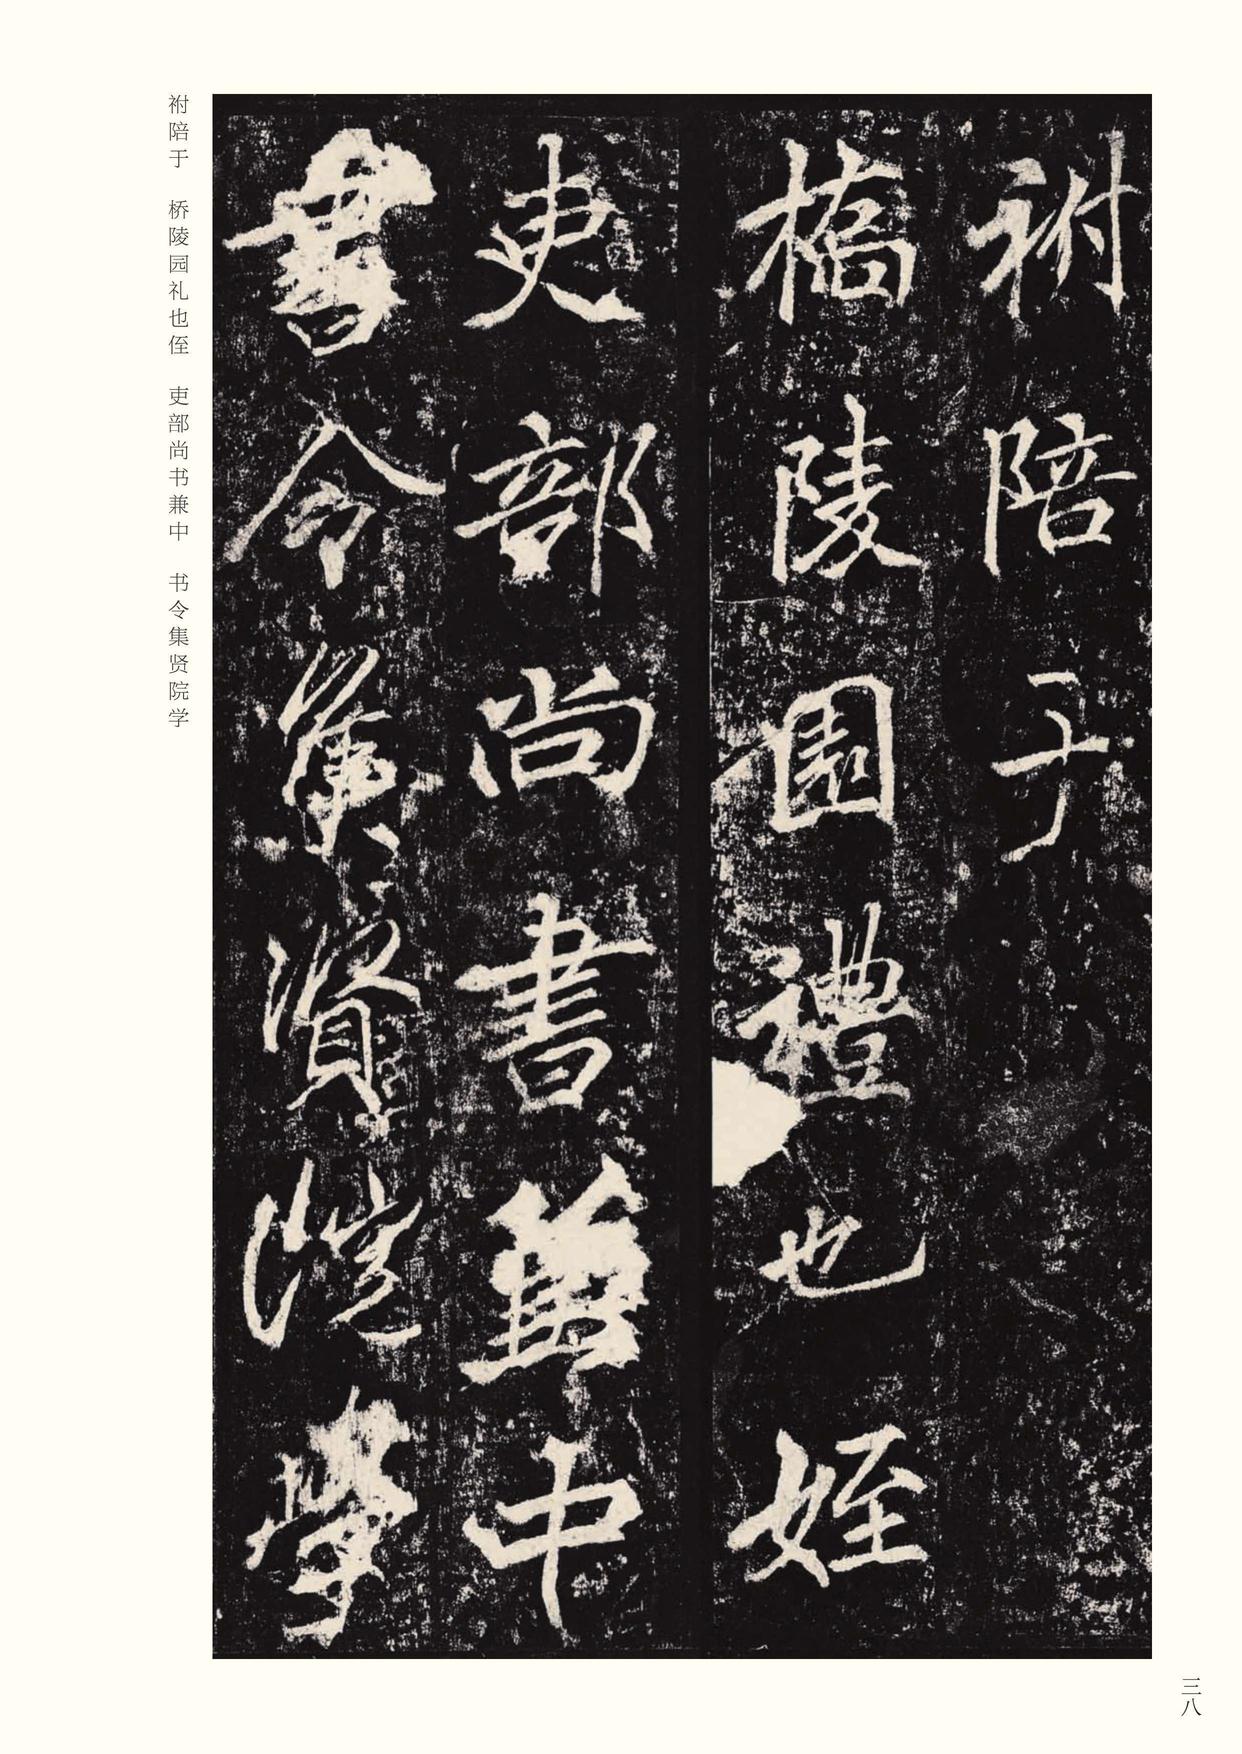 祔陪于
橋陵園禮也姪
吏部尚書兼中
書令集賢院學
祔陪于　桥陵园礼也侄　吏部尚书兼中　书令集贤院学
三八